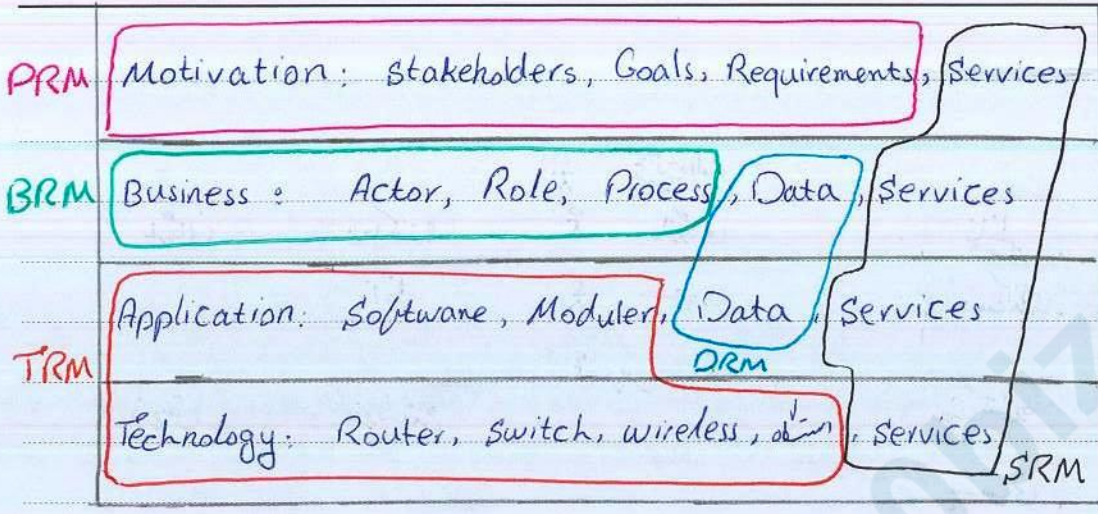 PRM Motivation: Stakeholders, Goals, Requirements, Services
BRM Business: Actor, Role, Process, Data, Services
Application: Software, Moduler, Data, Services
TRM
DRM
Technology: Router, Switch, wireless, , Services
SRM